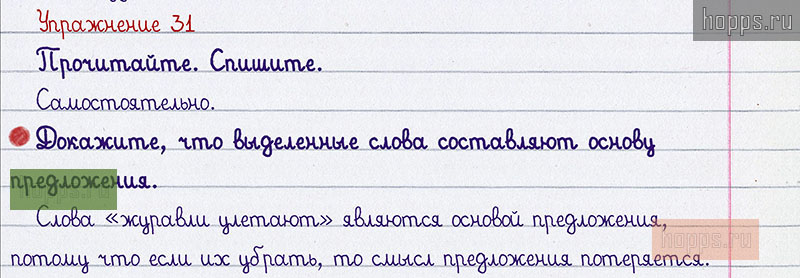 hopps.ru
Упражнение 31
Прочитайте. Спишите.
Самостоятельно.
Докажите, что выделенные слова составляют основу
предложения.
hopps.ru
Слова «журавли улетают» являются основой предложения,
hopps.ru
потому что если их убрать, то смысл предложения потеряется.